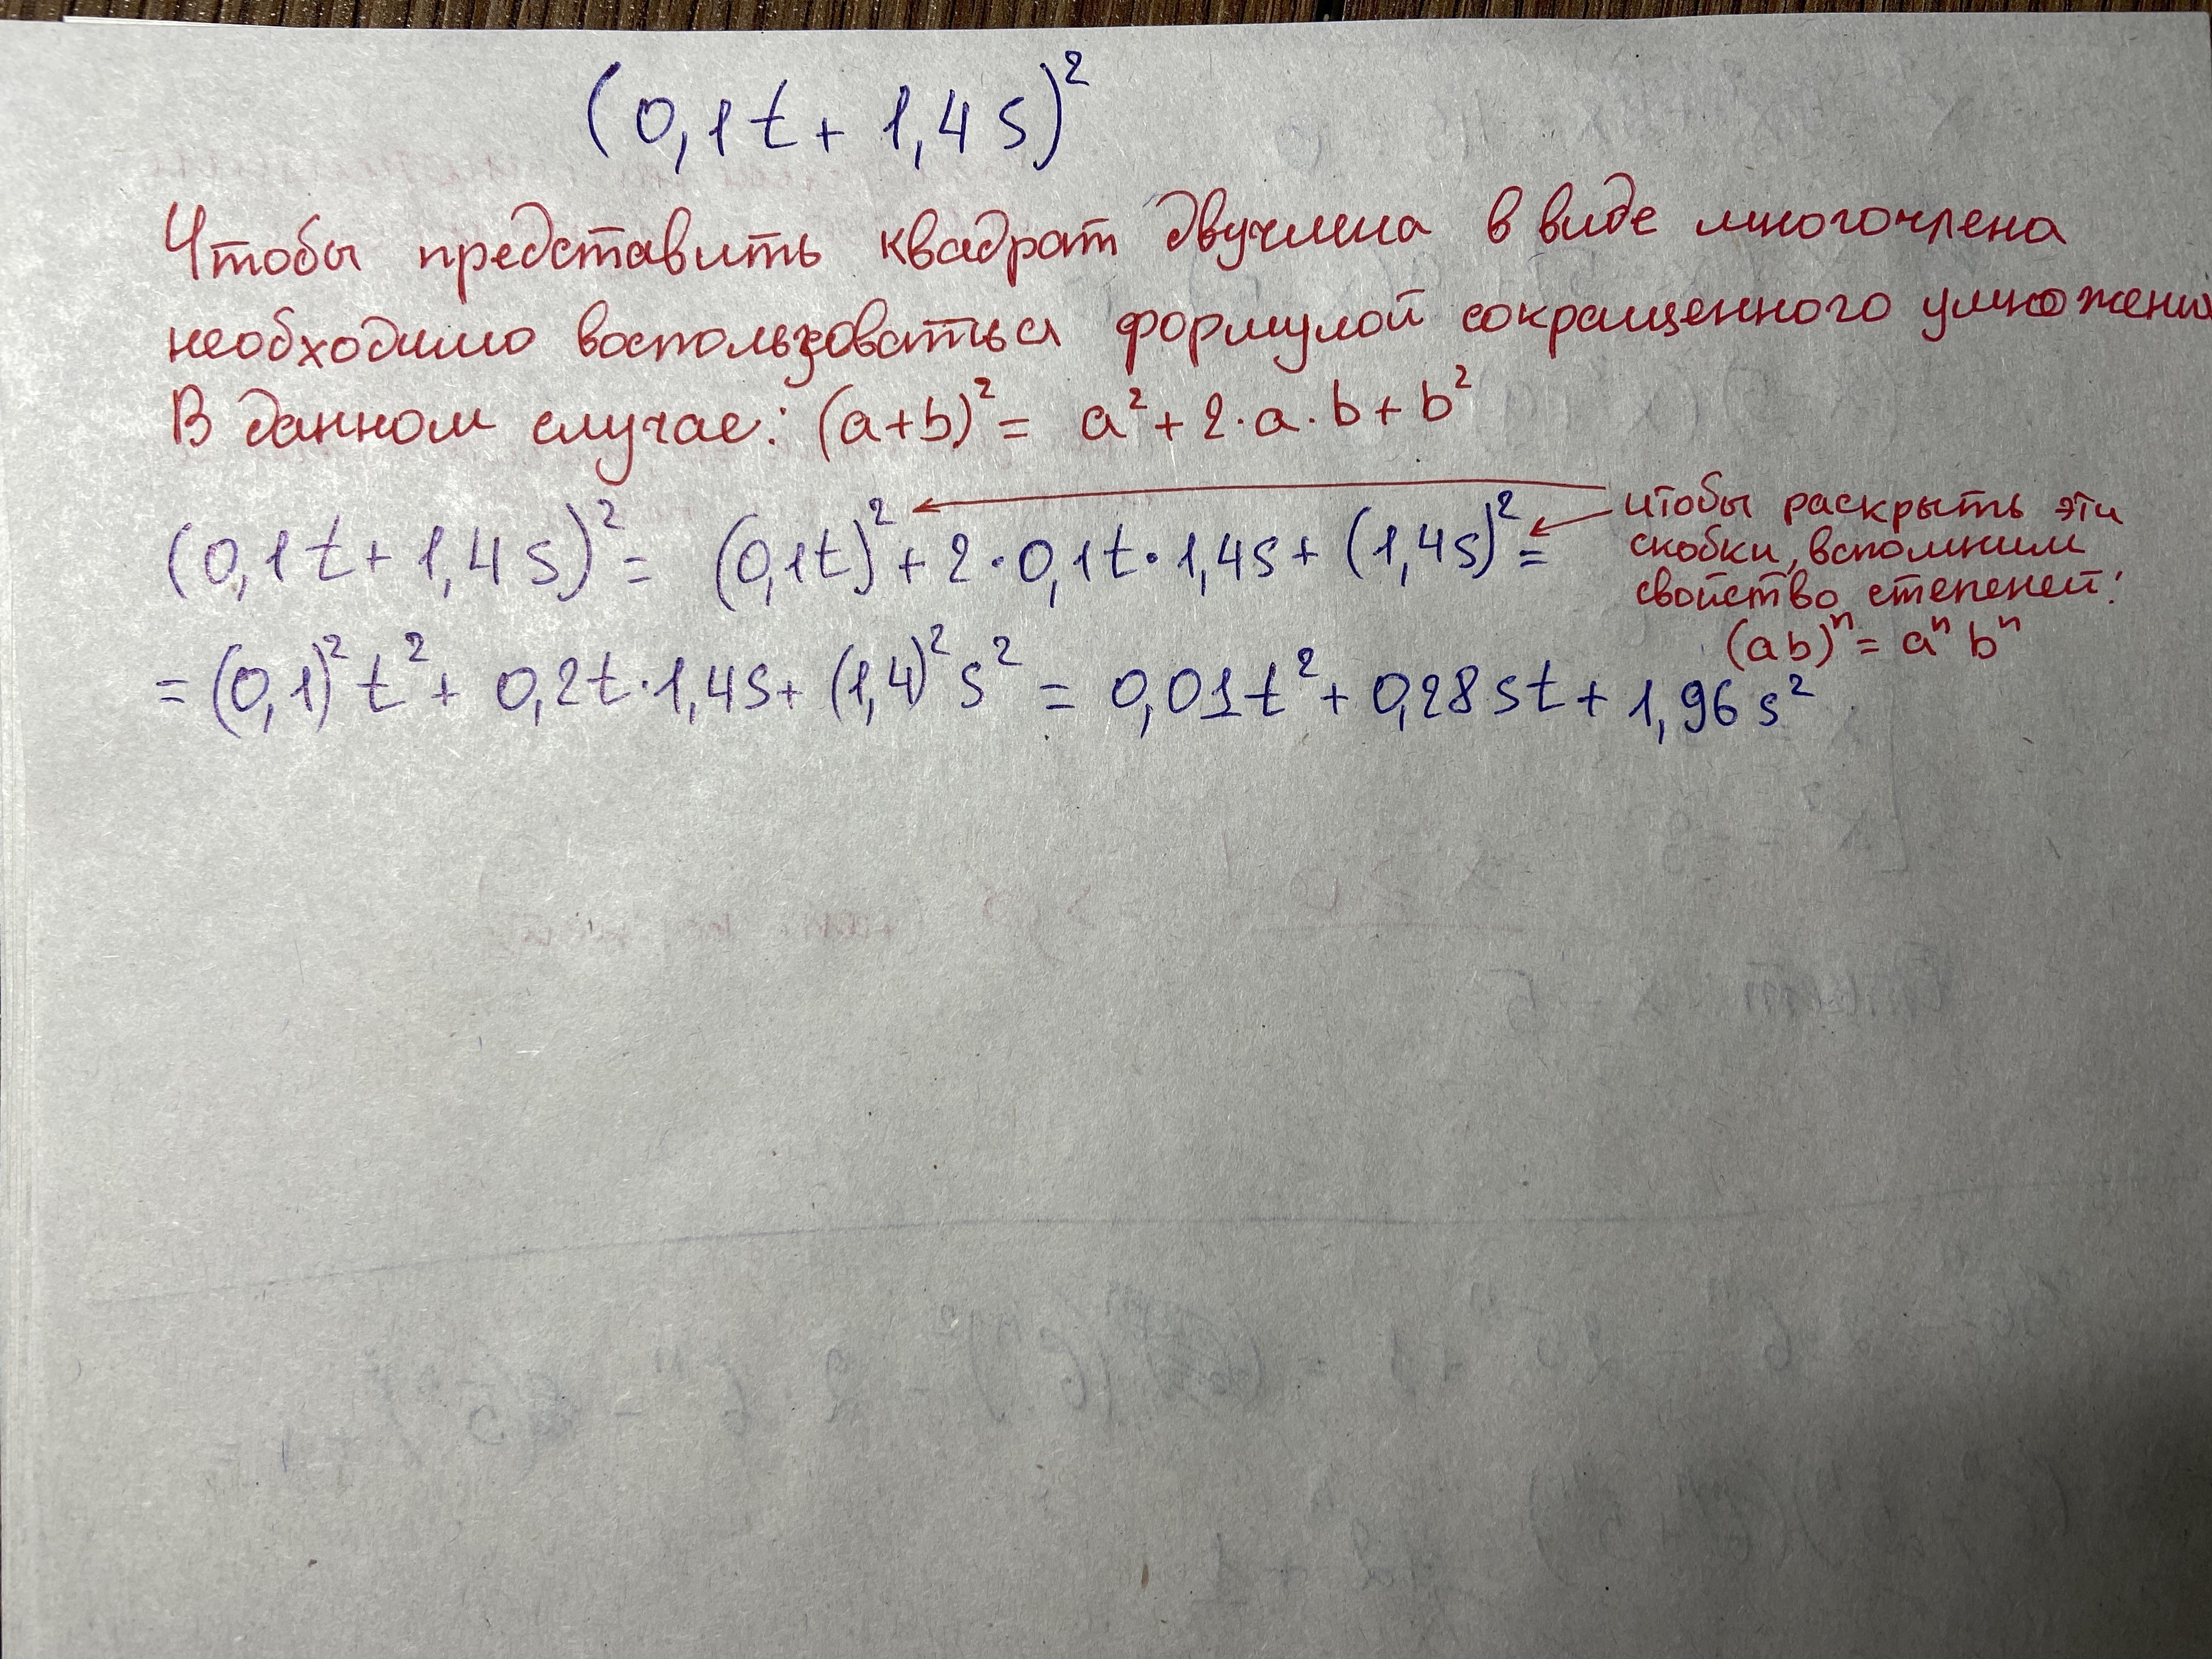 (0,1t + 1,4s)²
Чтобы представить квадрат двучлена в виде многочлена
необходимо воспользоваться формулой сокращенного умножения
В данном случае: (a+b)² = a² + 2·a·b + b²
(0,1t + 1,4s)² = (0,1t)² + 2·0,1t·1,4s + (1,4s)² =
чтобы раскрыть эти
скобки, вспомним
свойство степеней:
(ab)ⁿ = aⁿ bⁿ
= (0,1)² t² + 0,2t·1,4s + (1,4)² s² = 0,01t² + 0,28st + 1,96s²